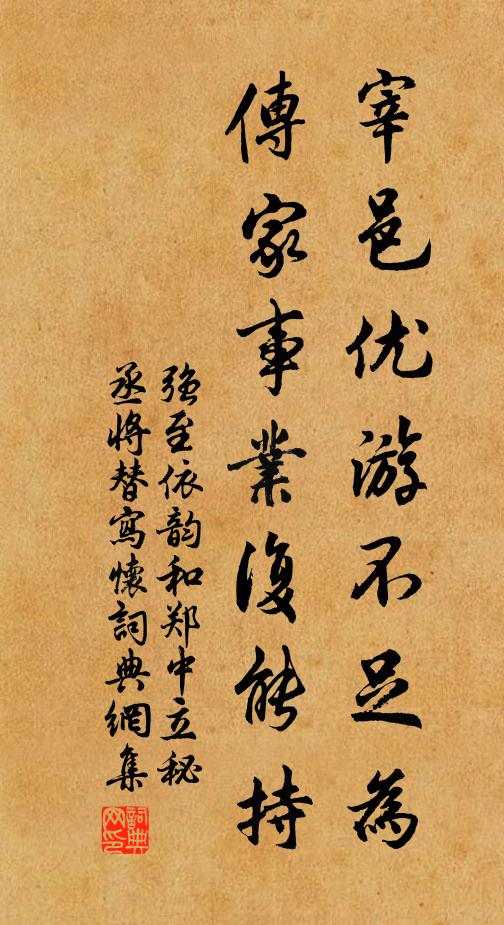 宰邑优游不足為
傳家事業復能持
强至依韵和郑中立秘
丞將替寫懷詞典網集
詞典网印